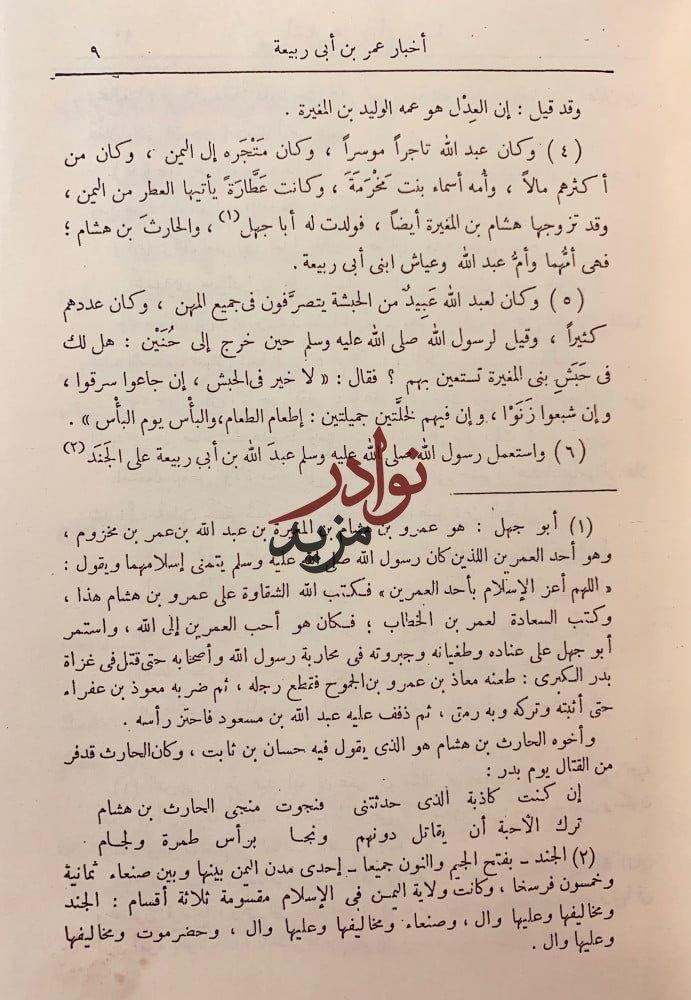 أخبار عمر بن أبى ربيعة ٩
وقد قيل : إن العِدْل هو عمه الوليد بن المغيرة .
(٤) وكان عبد الله تاجراً موسراً ، وكان مَتْجَره إلى اليمن ، وكان من
أكثرهم مالاً ، وأمه أسماء بنت مَخْرَمَةَ ، وكانت عَطَّارَةً يأتيها العطر من اليمن ،
وقد تزوجها هشام بن المغيرة أيضاً ، فولدت له أبا جهل(١) ، والحارثَ بن هشام ؛
فهى أمُّهما وأمُّ عبد الله وعياش ابنى أبى ربيعة .
(٥) وكان لعبد الله عَبِيدٌ من الحبشة يتصرَّفون فى جميع المهن ، وكان عددهم
كثيراً ، وقيل لرسول الله صلى الله عليه وسلم حين خرج إلى حُنَيْن : هل لك
فى حَبَشِ بنى المغيرة تستعين بهم ؟ فقال : « لا خير فى الحبش ، إن جاعوا سرقوا ،
وإن شبعوا زَنَوْا ، وإن فيهم لخلَّتين جميلتين : إطعام الطعام، والبأْس يوم البأْس » .
(٦) واستعمل رسول الله صلى الله عليه وسلم عبدَ الله بن أبي ربيعة على الجَنَد(٢)
نوادر
مزيد
(١) أبو جهل : هو عمرو بن هشام بن المغيرة بن عبد الله بن عمر بن مخزوم ،
وهو أحد العمرين اللذين كان رسول الله صلى الله عليه وسلم يتمنى إسلامهما ويقول :
« اللهم أعز الإسلام بأحد العمرين » فكتب الله الشقاوة على عمرو بن هشام هذا ،
وكتب السعادة لعمر بن الخطاب ؛ فكان هو أحب العمرين إلى الله ، واستمر
أبو جهل على عناده وطغيانه وجبروته فى محاربة رسول الله وأصحابه حتى قتل فى غزاة
بدر الكبرى : طعنه معاذ بن عمرو بن الجموح فقطع رجله ، ثم ضربه معوذ بن عفراء
حتى أثبته وتركه وبه رمق ، ثم ذفف عليه عبد الله بن مسعود فاحتز رأسه .
وأخوه الحارث بن هشام هو الذى يقول فيه حسان بن ثابت ، وكان الحارث قد فر
من القتال يوم بدر :
إن كنت كاذبة الذى حدثتنى فنجوت منجى الحارث بن هشام
ترك الأحبة أن يقاتل دونهم ونجا برأس طمرة ولجام
(٢) الجند ــ بفتح الجيم والنون جميعا ــ إحدى مدن اليمن بينها وبين صنعاء ثمانية
وخمسون فرسخا ، وكانت ولاية اليمن فى الإسلام مقسومة ثلاثة أقسام : الجند
ومخاليفها وعليها وال ، وصنعاء ومخاليفها وعليها وال ، وحضرموت ومخاليفها
وعليها وال .